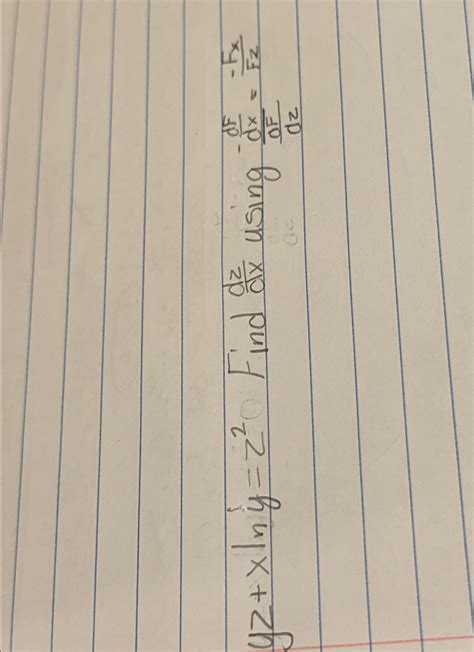 yz + x ln y = z² Find dz/dx using -dF/dx / dF/dz = -Fx/Fz